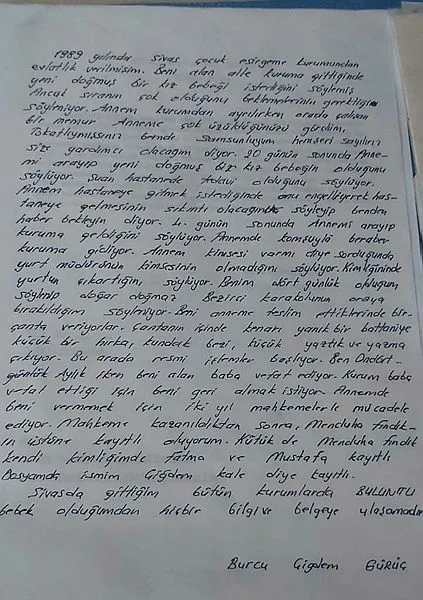 1989 yılında sivas çocuk esirgeme kurumundan
evlatlık verilmişim. Beni alan aile kuruma gittiğinde
yeni doğmuş bir kız bebeği istediğini söylemiş
Ancak sıranın çok olduğunu beklemelerinin gerektiğini
söyleniyor. Annem kurumdan ayrılırken orada çalışan
bir memur Anneme çok üzüldüğünüzü gördüm,
Tokatlıymışsınız bende Samsunluyum hemşeri sayılırız
size yardımcı olacağım diyor. 20 günün sonunda Anne-
mi arayıp yeni doğmuş bir kız bebeğin olduğunu
söylüyor. Şuan hastanede tedavi olduğunu söylüyor.
Annem hastaneye gitmek istediğinde onu engelleyerek has-
taneye gelmesinin sıkıntı olacağını söyleyip benden
haber bekleyin diyor. 4. günün sonunda Annemi arayıp
kuruma geldiğini söylüyor. Annemde komşuyla beraber
kuruma gidiyor. Annem kimsesi varmı diye sorduğunda
yurt müdürünün kimsesinin olmadığını söylüyor. Kimliğininde
yurttan çıkartığını söylüyor. Benim dört günlük olduğum
söylenip doğar doğmaz Bezirci karakolunun oraya
bırakıldığım söyleniyor. Beni anneme teslim ettiklerinde bir-
çanta veriyorlar. Çantanın içinde kenarı yanık bir battaniye
küçük bir hırka, kundak bezi, küçük yazlık ve yazma
çıkıyor. Bu arada resmi işlemler başlıyor. Ben Ondört-
günlük Aylık iken beni alan baba vefat ediyor. Kurum baba
vefat ettiği için beni geri almak istiyor. Annemde
beni vermemek için iki yıl mahkemelerle mücadele
ediyor. Mahkeme kazanıldıktan sonra, Menduha Fındık-
ın üstüne kayıtlı oluyorum. Kütük de Menduha Fındık
kendi kimliğimde Fatma ve Mustafa kayıtlı
Dosyamda ismim Çiğdem kale diye kayıtlı.
Sivasda gittiğim bütün kurumlarda BULUNTU
bebek olduğumdan hiçbir bilgi ve belgeye ulaşamadım
Burcu Çigdem GÜRÜÇ